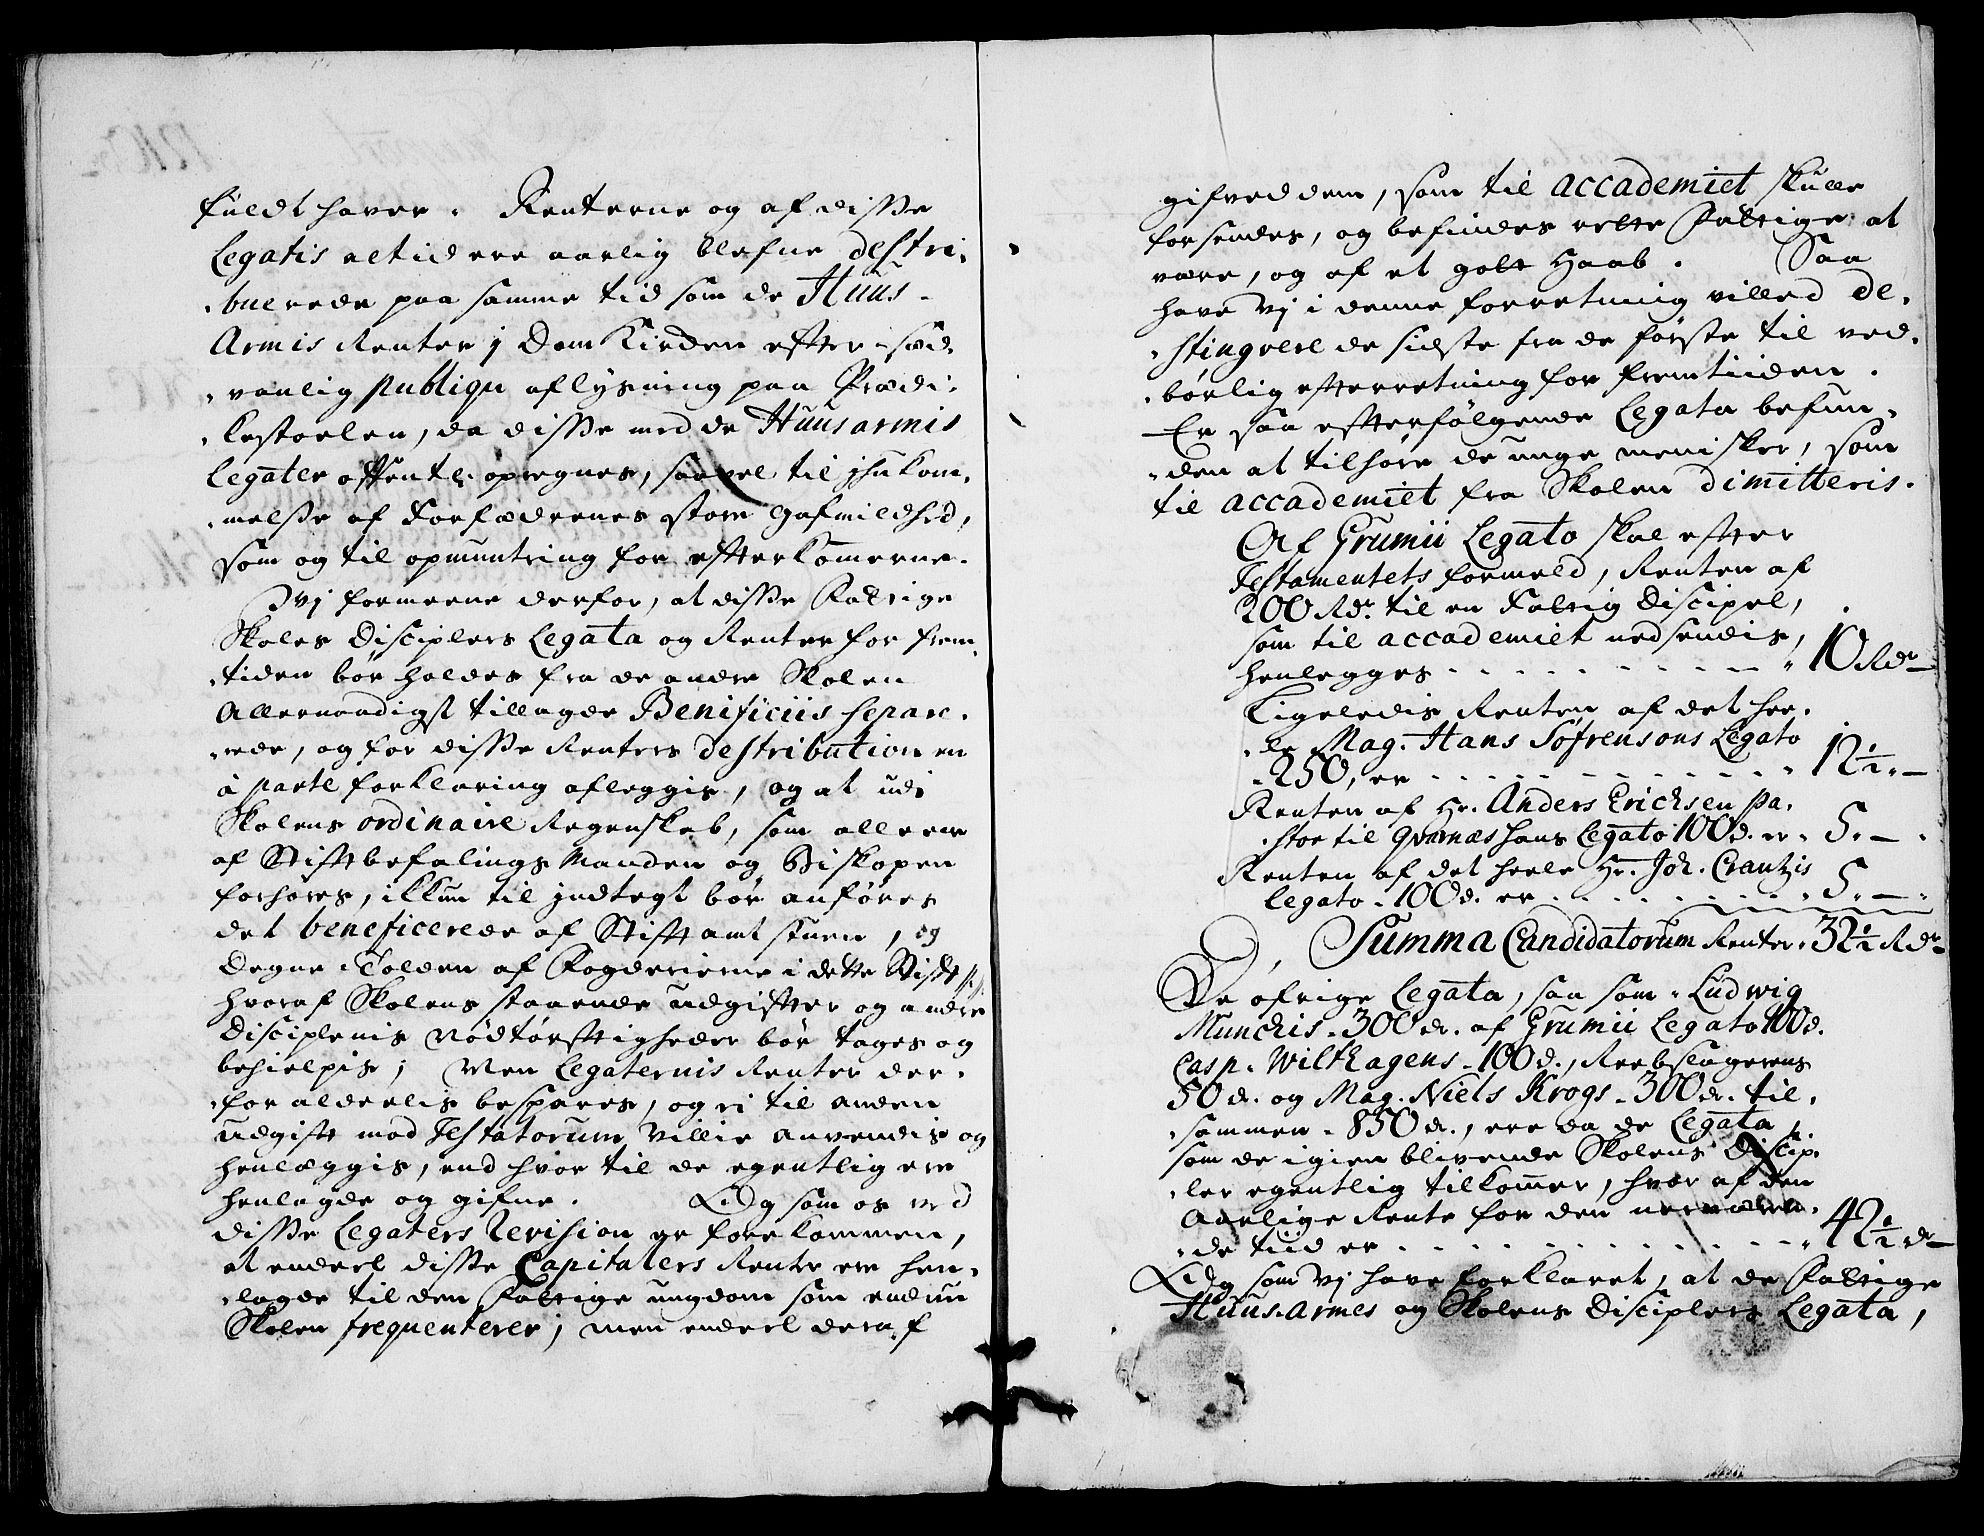 fuldt haver. Renterne og af disse
Legatis altid ere aarlig blefne destri-
buerede paa samme tid som de Huus-
Armis Renter j Dom Kirken efter sæd-
vanlig publiqu aflysning paa Prædi-
kestoelen, da disse med de Huusarmis
Legater offentl. opregnes, saavel til jhukom-
melse af Forfædrenes store gafmildhed,
som og til opmuntring for efterkomerne.
Vj formeene derfor, at disse Fattige
Skoles Disciplers Legata og Renter for frem-
tiden bør holdes fra de andre Skolen
Allernaadigst tillagde Benificiis separe-
rede, og for disse Renters destribution en
à parte forklaring afleggis, og at udi
Skolens ordinaire Regenskab, som alleene
af Stiftbefalings Manden og Biskopen
forhøres, ikkun til jndtegt bør anføres
det beneficerede af Stiftamt stuen, og
Degne Tolden af Fogderierne i dette Stift,
hvoraf Skolens staaende udgifter og andre
Disciplenis Nødtørftigheder bør tages og
behielpis; Men Legaternis Renter der-
for alderlis bespares, og ei til anden
udgift mod Testatorum Villie anvendis og
henlæggis, end hvor til de egentlig ere
henlagde og gifne. Og som os ved
disse Legaters Revision er forekommen,
at endeel disse Capitalers Rente ere hen-
lagde til den Fattige ungdom som endnu
Skolen frequenterer; men endeel deraf
gifved dem, som til accademiet skulle
forsendes, og befindes rette Fattige at
være, og af et gott Haab. Saa
have Vj i denne forretning villed de-
stingvere de sidste fra de første til ved-
børlig efterretning for fremtiiden.
Er saa efterfølgende Legata befun-
den at tilhøre de unge menisker, som
til accademiet fra Skolen dimitteris.
Af Grumii Legato skal efter
Testamentets formeld, Renten af
200 Rdr. til en Fattig Discipel,
som til accademiet nedsendis,
henlegges . . . . . . . . . 10 Rdr
Ligeledis Renten af det hee-
le Mag. Hans Søfrensons Legato
250, er . . . . . . . . . . 12½ „ —
Renten af Hr. Anders Erichsen Pa-
stor til Qværnæs hans Legato 100 d. er „ 5 „ —
Renten af det heele Hr. Joh. Crantzis
Legato 100 d. er . . . . . . . 5 „ —
Summa Candidatorum Renter 32½ Rdr
De øfrige Legata, saa som Ludwig
Munchis 300 dr. af Grumii Legato 100 d.
Casp. Wilthagens 100 d., Reebslagerens
50 dr. og Mag. Niels Krogs 300 dr. til-
sammen 850 dr., ere da de Legata
som de igien blivende Skolens Discip-
ler egentlig tilkommer, hvor af den
Aarlige Rente for den nerværen-
de tiid er . . . . . . . . . . 42½ dr
Og som Vj have forklaret, at de Fattige
Huus-Armes og Skolens Disciplers Legata,